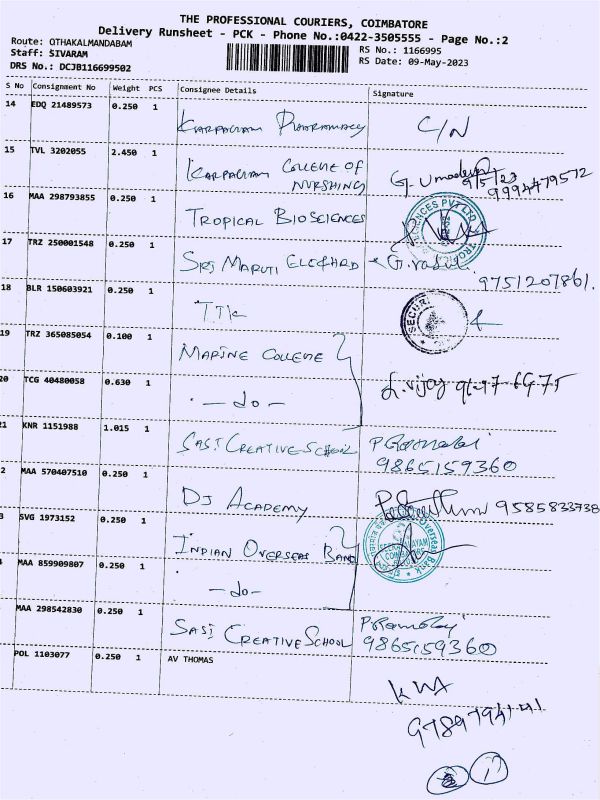 THE PROFESSIONAL COURIERS, COIMBATORE
Delivery Runsheet - PCK - Phone No.:0422-3505555 - Page No.:2
Route: OTHAKALMANDABAM
Staff: SIVARAM
DRS No.: DCJB116699502
RS No.: 1166995
RS Date: 09-May-2023
S No Consignment No Weight PCS Consignee Details Signature
14 EDQ 21489573 0.250 1 KARPAGAM PHARAMACY C/N
15 TVL 3202055 2.450 1 KARPAGAM COLLEGE OF NURSHING G. Umadevi
9/5/23
9994479572
16 MAA 298793855 0.250 1 TROPICAL BIOSCIENCES
17 TRZ 250001548 0.250 1 SRI MARUTI
9751207861.
18 BLR 150603921 0.250 1 TTK
SECURI
19 TRZ 365085054 0.100 1 MARINE COLLEGE
20 TCG 40480058 0.630 1 - do - L. vijay
21 KNR 1151988 1.015 1 SASI CREATIVE SCHOOL
9865159360
2 MAA 570407510 0.250 1 DJ ACADEMY 9585833738
3 SVG 1973152 0.250 1 INDIAN OVERSEAS BANK
MAA 859909807 0.250 1 - do -
MAA 298542830 0.250 1 SASI CREATIVE SCHOOL
9865159360
POL 1103077 0.250 1 AV THOMAS